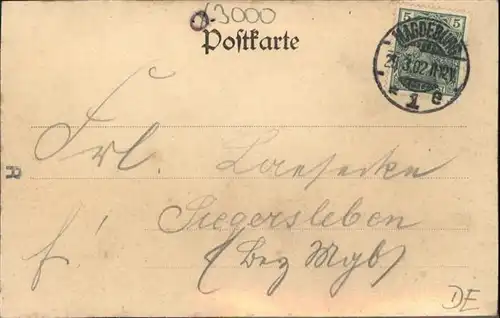 (3000
Postkarte
5 5
MAGDEBURG
25.3.02.11-12V.
* 1 e
Frl. Laesecke
R
Siegersleben
f!
(Bez Mgb)
DE